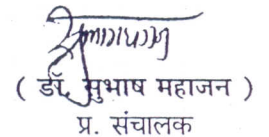 ( डॉ. सुभाष महाजन )
प्र. संचालक